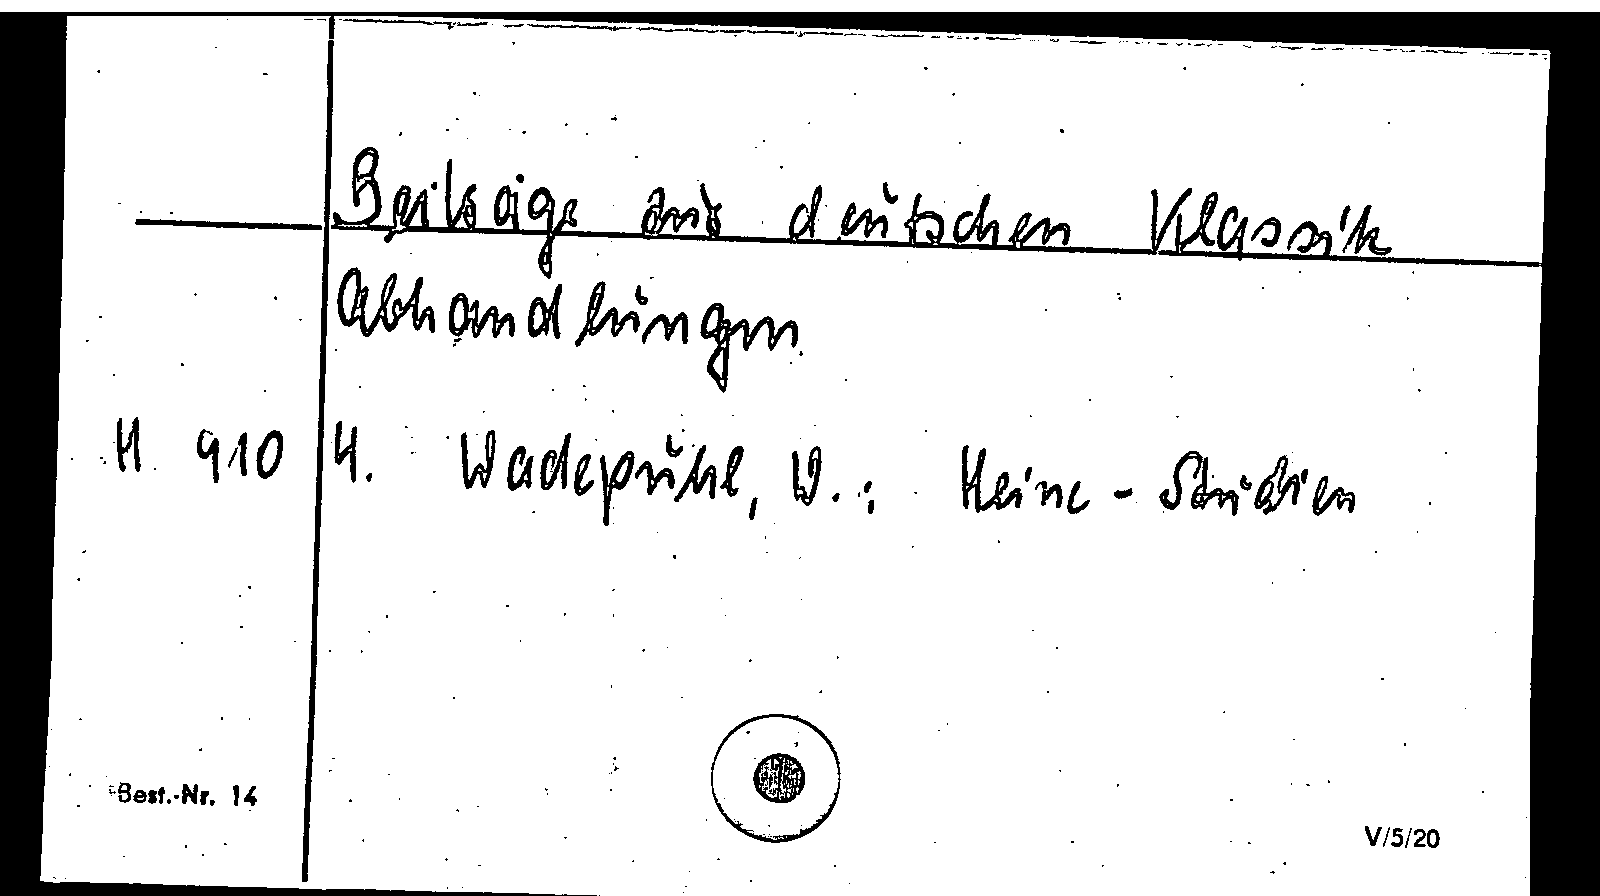 Beiträge zur deutschen Klassik
Abhandlungen
H 910 4. Wadepuhl, W.: Heine-Studien
Best.-Nr. 14
V/5/20